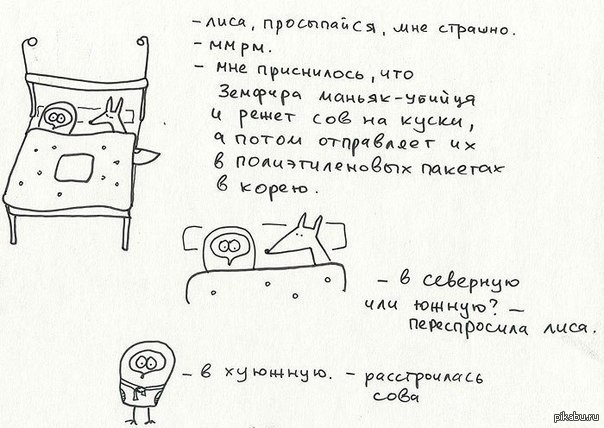 - лиса, просыпайся, мне страшно.
- ммрм.
- мне приснилось, что
Земфира маньяк-убийца
и режет сов на куски,
а потом отправляет их
в полиэтиленовых пакетах
в корею.
- в северную
или южную? -
переспросила лиса.
- в хуюжную. - расстроилась
сова
pikabu.ru